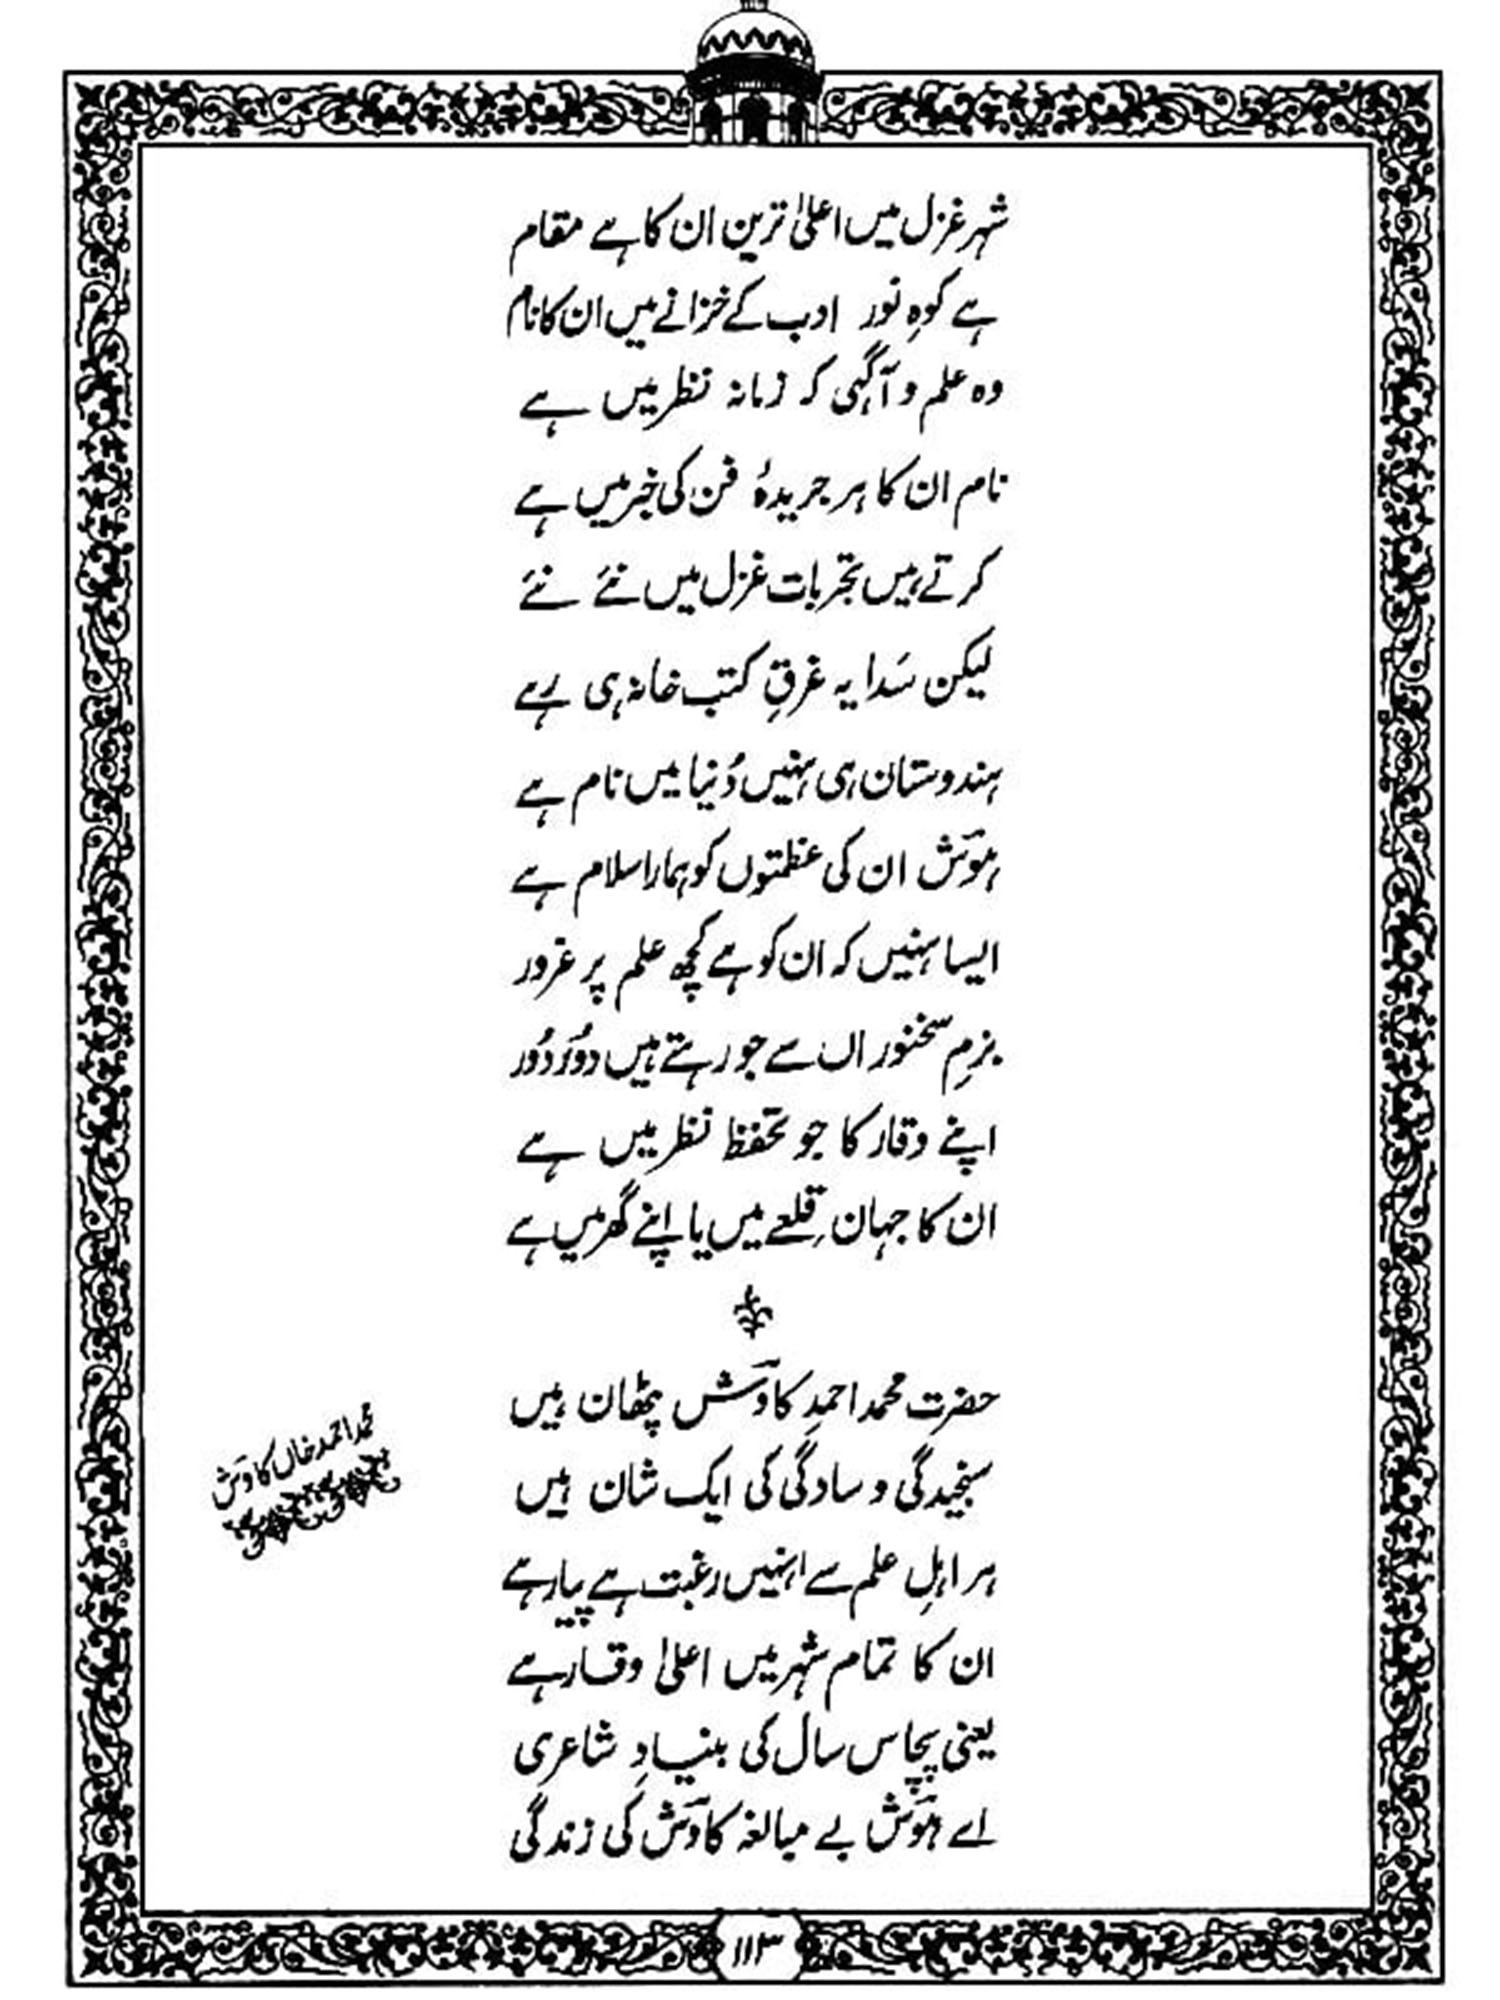 شہر غزل میں اعلیٰ ترین ان کا ہے مقام
ہے کوہِ نور ادب کے خزانے میں ان کا نام
وہ علم و آگہی کہ زمانہ نظر میں ہے
نام ان کا ہر جریدۂ فن کی خبر میں ہے
کرتے ہیں تجربات غزل میں نئے نئے
لیکن سَدا یہ غرقِ کتب خانہ ہی رہے
ہندوستان ہی نہیں دُنیا میں نام ہے
ہوشؔ ان کی عظمتوں کو ہمارا سلام ہے
ایسا نہیں کہ ان کو ہے کچھ علم پر غرور
بزمِ سخنوراں سے جو رہتے ہیں دوُر دوُر
اپنے وقار کا جو تحفظ نظر میں ہے
ان کا جہان، قلعے میں یا اپنے گھر میں ہے
حضرتِ محمد احمدِ کاوشؔ پٹھان ہیں
سنجیدگی و سادگی کی ایک شان ہیں
محمد احمد خاں کاوشؔ
ہر اہلِ علم سے انہیں رغبت ہے پیار ہے
ان کا تمام شہر میں اعلیٰ وقار ہے
یعنی پچاس سال کی بنیادِ شاعری
اے ہوشؔ بے مبالغہ کاوشؔ کی زندگی
۱۱۳